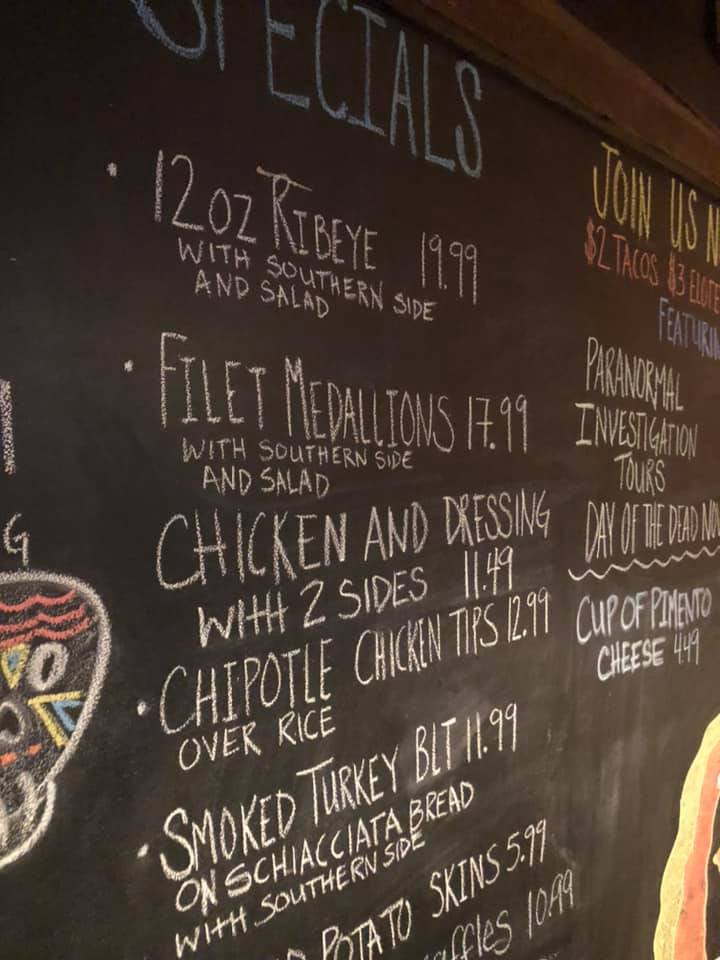 SPECIALS
• 12oz RIBEYE 19.99
WITH SOUTHERN SIDE
AND SALAD
• FILET MEDALLIONS 17.99
WITH SOUTHERN SIDE
AND SALAD
CHICKEN AND DRESSING
WITH 2 SIDES 11.49
• CHIPOTLE CHICKEN TIPS 12.99
OVER RICE
• SMOKED TURKEY BLT 11.99
ON SCHIACCIATA BREAD
WITH SOUTHERN SIDE
POTATO SKINS 5.99
10.99
JOIN US
$2 TACOS $3
PARANORMAL
INVESTIGATION
TOURS
DAY OF THE DEAD
CUP OF PIMENTO
CHEESE 4.49
G